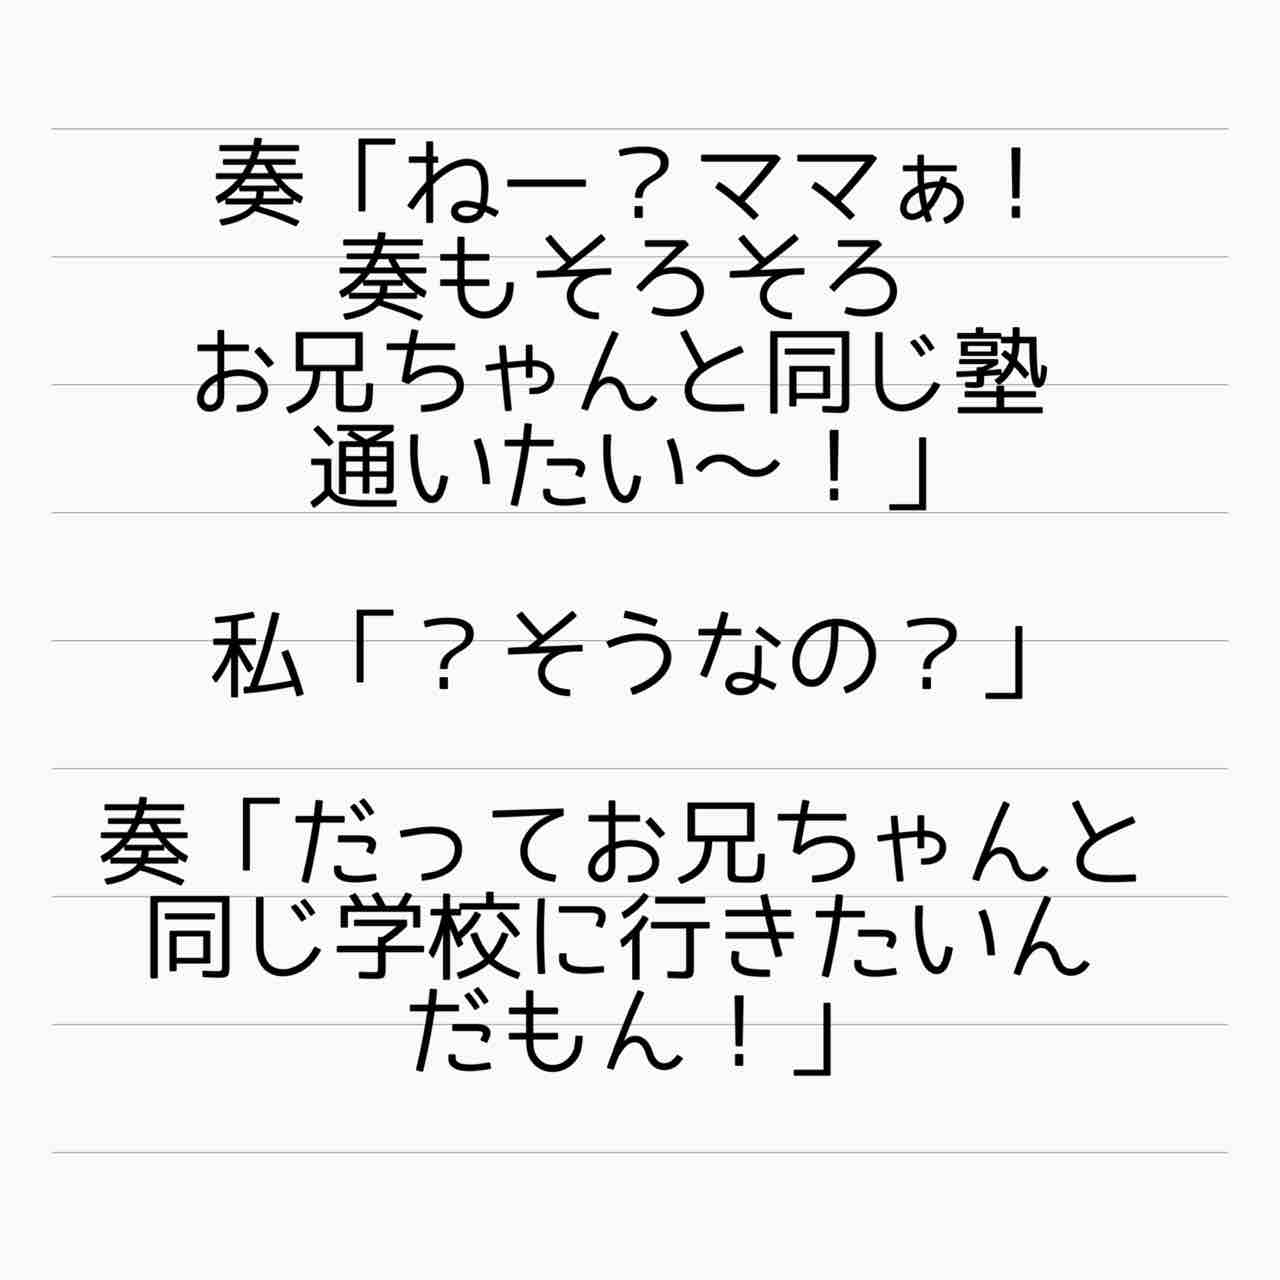 奏「ねー？ママぁ！
奏もそろそろ
お兄ちゃんと同じ塾
通いたい〜！」
私「？そうなの？」
奏「だってお兄ちゃんと
同じ学校に行きたいん
だもん！」